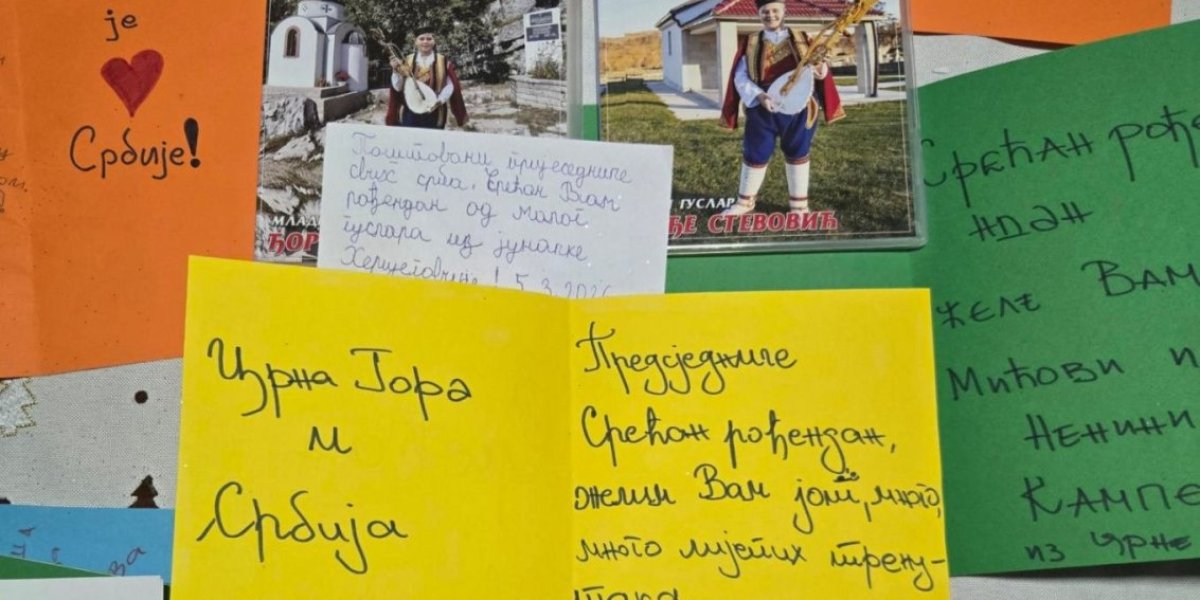 је
Србије!
МЛАД
ЂОР
ГУСЛАР
ЂЕ СТЕВОВИЋ
Поштовани председниче
свих срба, Срећан Вам
рођендан од малог
гуслара из јуначке
Херцеговине! 5.3.2026
Црна Гора
и
Србија
Предсједниче
Срећан рођендан,
желим Вам још, много,
много лијепих трену-
така
Срећан рође
ндан
желе Вам
Мићови и
Ненини
Кампе
из Црне